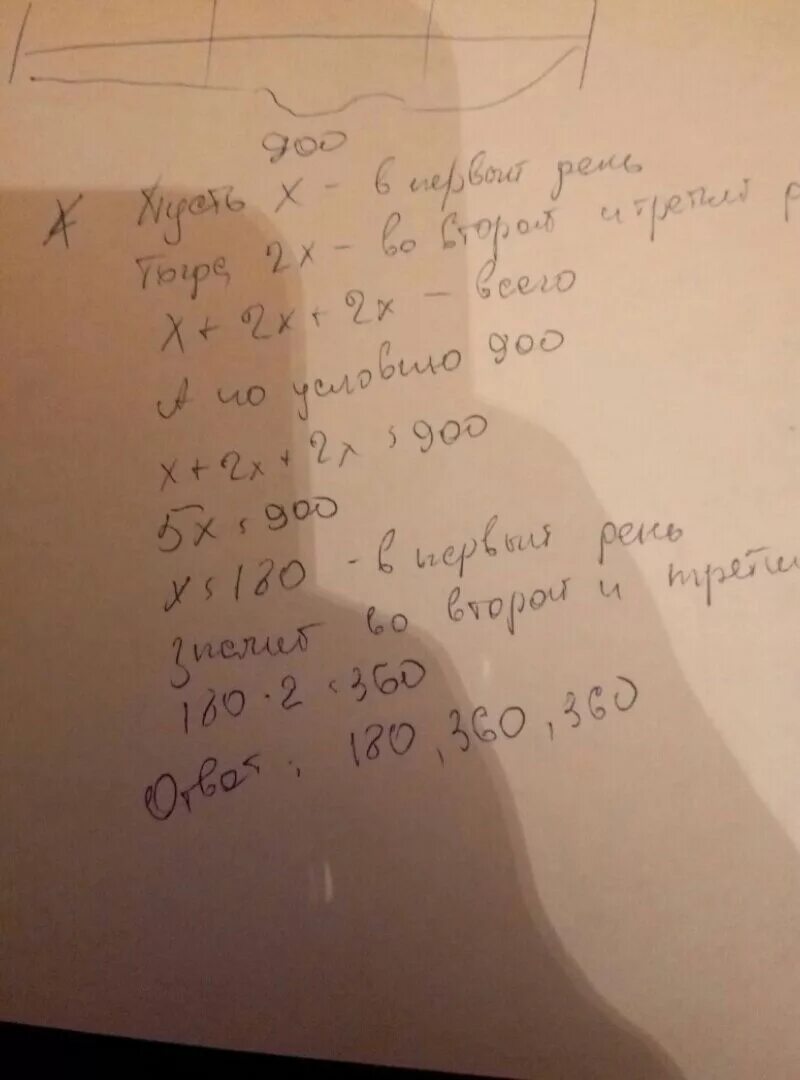 900
Пусть x - в первый день
Тогда 2x - во второй и третий
x + 2x + 2x - всего
А по условию 900
x + 2x + 2x = 900
5x = 900
x = 180 - в первый день
Значит во второй и
180 · 2 = 360
Ответ: 180, 360, 360